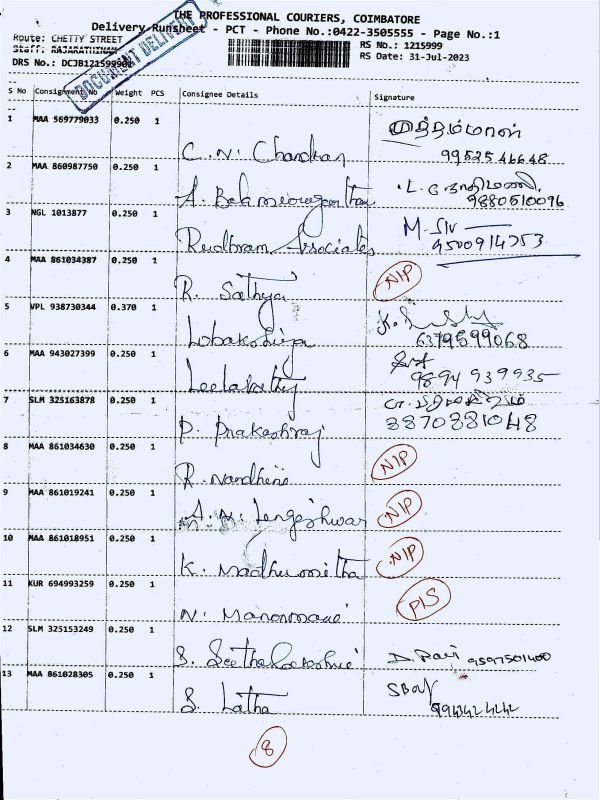 THE PROFESSIONAL COURIERS, COIMBATORE
Delivery Runsheet - PCT - Phone No.:0422-3505555 - Page No.:1
Route: CHETTY STREET
RS No.: 1215999
Staff: RAJARATHINAM
RS Date: 31-Jul-2023
DRS No.: DCJB121599901
DOCUMENT DELIVERY
S No Consignment No Weight PCS Consignee Details Signature
1 MAA 569779033 0.250 1 C. N. Chandran முத்தம்மாள்
9952546648
2 MAA 860987750 0.250 1 A. 9880510096
3 NGL 1013877 0.250 1 Rudhram Associates M. Siv
9500914753
4 MAA 861034387 0.250 1 R. Sathya NIP
5 VPL 938730344 0.370 1 6379599068
6 MAA 943027399 0.250 1 9894 939935
7 SLM 325163878 0.250 1 P. Prakashraj
8870881048
8 MAA 861034630 0.250 1 R. Nandhini NIP
9 MAA 861019241 0.250 1 NIP
10 MAA 861018951 0.250 1 K. Madhumitha NIP
11 KUR 694993259 0.250 1 PLS
12 SLM 325153249 0.250 1 S. 9597501400
13 MAA 861028305 0.250 1 S. Latha
8